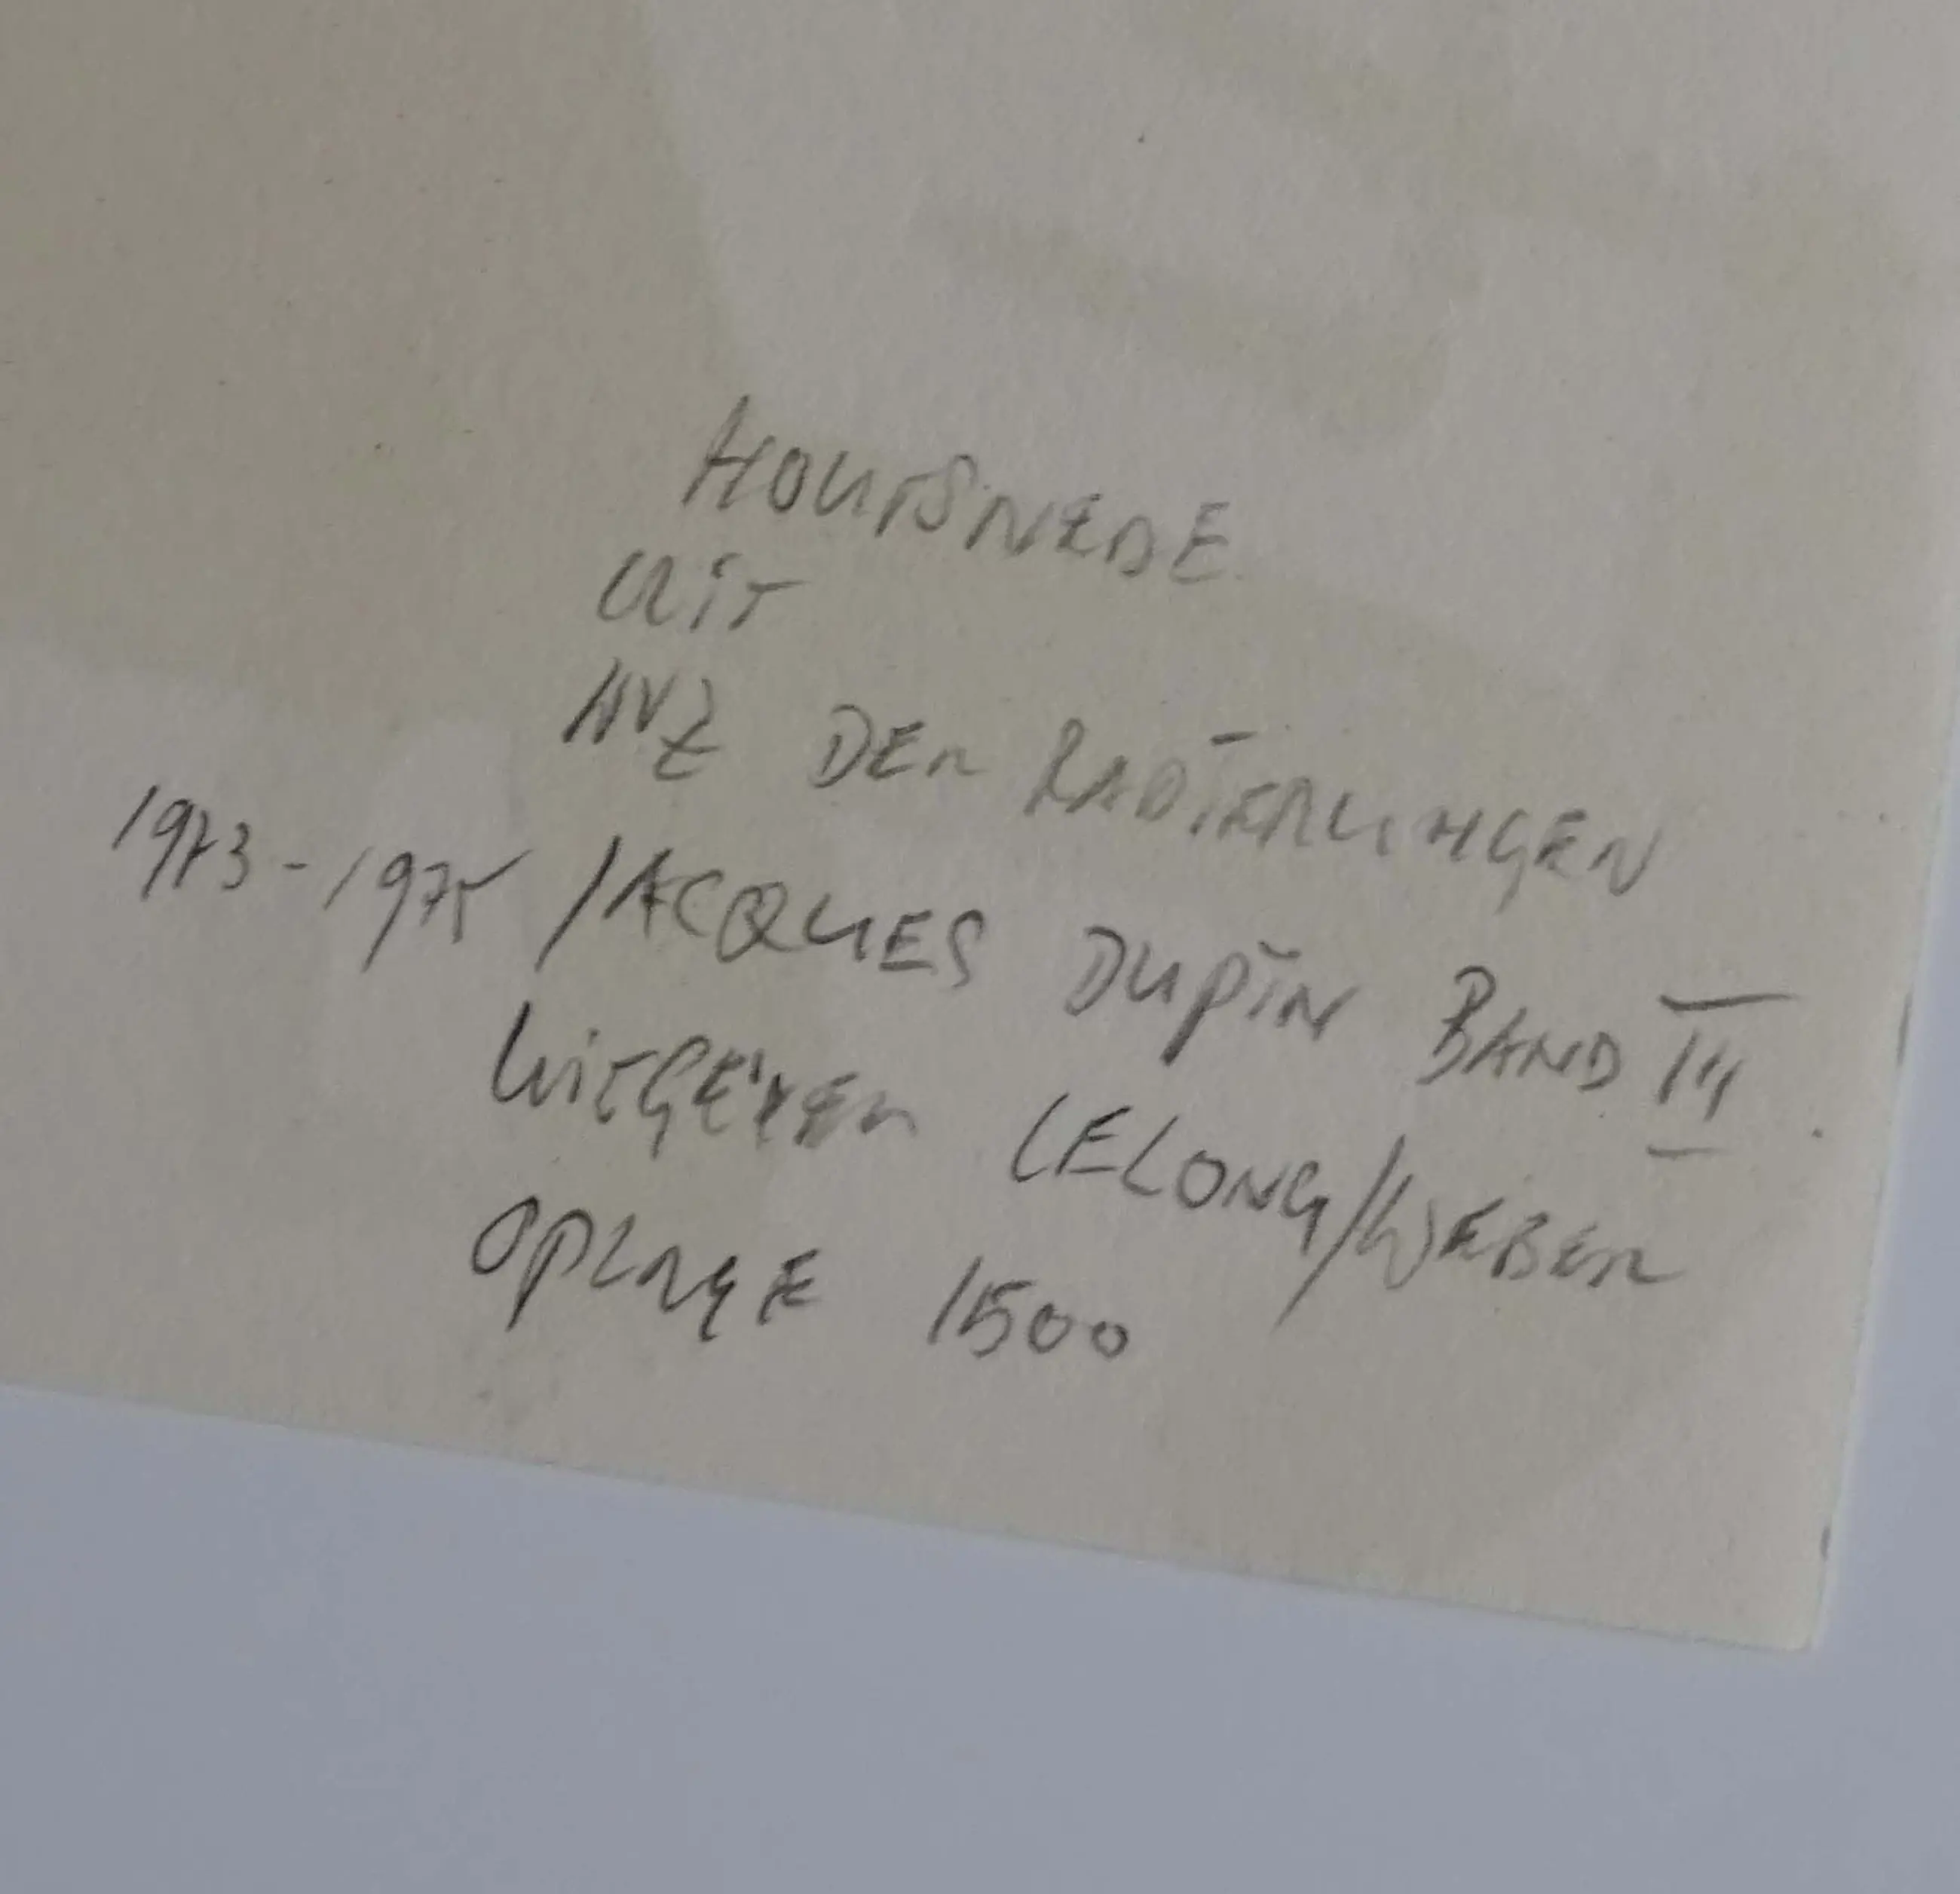 HOUTSNEDE
UIT
WVZ DER RADIERUNGEN
1973-1975 / JACQUES DUPIN BAND III
UITGEVER LELONG/WEBER
OPLAGE 1500